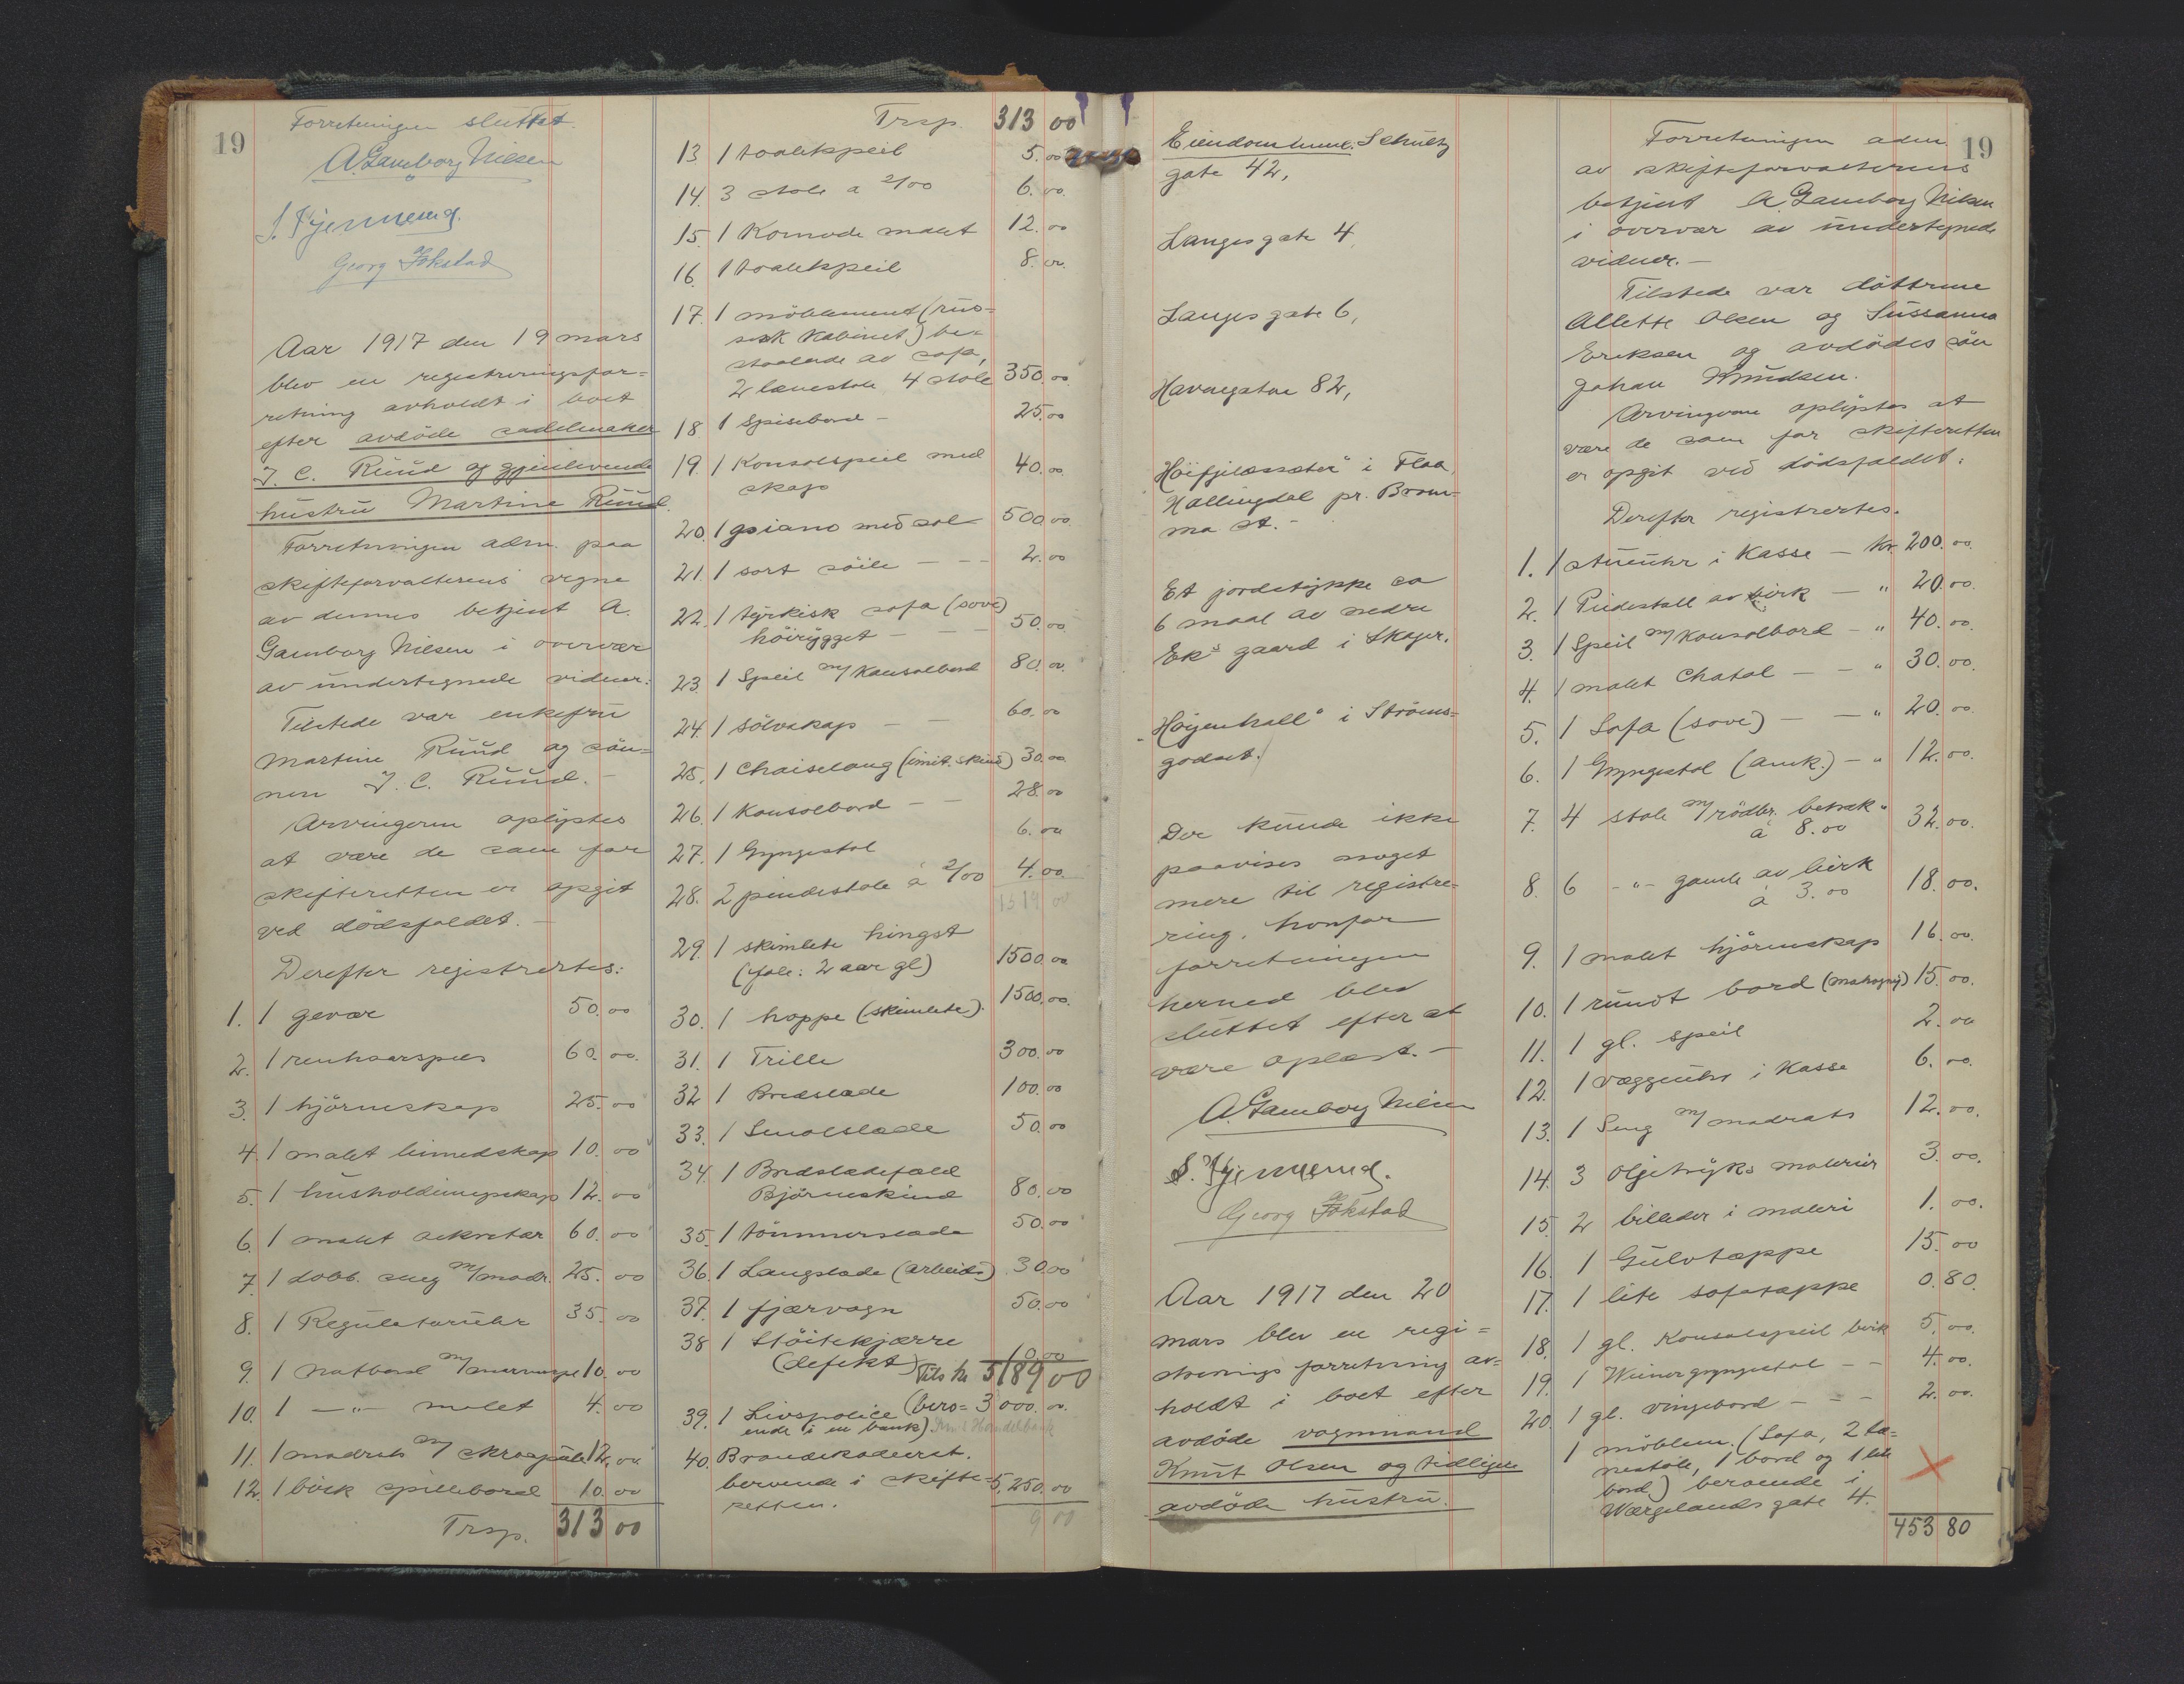 19
Forretningen sluttet.
A. Gamborg Nilsen
S. Fjermerud.
Georg Fokstad
Aar 1917 den 19 mars
blev en registreringsfor=
retning avholdt i boet
efter avdöde sadelmaker
J. C. Ruud og gjenlevende
hustru Martine Ruud.
Forretningen adm. paa
skifteforvalterens vegne
av dennes betjent A.
Gamborg Nilsen i overvær
av undertegnede vidner:
Tilstede var enkefru
Martine Ruud og søn=
nen J. C. Ruud. –
Arvingerne oplystes
at være de som for
skifteretten er opgit
ved dödsfaldet. –
Derefter registrertes:
1. 1 gevær 50.00
2. 1 renhaarspels 60.00.
3. 1 hjörneskap 25.00
4. 1 malet linnedskap 10.00
5. 1 husholdningsskap 12.00
6. 1 malet sekretær 60.00
7. 1 dobb. seng m/madr. 25.00
8. 1 Regulatoruhr 35.00
9. 1 natbord m/marmorpl 10.00
10. 1 –"– malet 4.00
11. 1 madrats m/ skraapüte 12.00
12. 1 birk spillebord 10.00
Trsp. 313 00
Trsp. 313 00
13 1 toaletspeil 5.00
14. 3 stole a 2/00 6.00.
15. 1 Komode malet 12.00
16. 1 toaletspeil 8.00.
17. 1 möblement (rus=
sisk Kabinet) be=
staaende av sofa,
2 lænestole 4 stole 350.00
18 1 Spisebord – 25.00
19. 1 Konsolspeil med
skap 40.00
20. 1 piano med stol 500.00.
21. 1 sort söile – – – 2.00
22. 1 tyrkisk sofa (sove)
höirygget – – – 50.00.
23. 1 Speil m/Konsolbord 80.00.
24. 1 sölvskap – – 60.00
25. 1 Chaiselong (imit. skind) 30.00
26. 1 Konsolbord – – 28.00
27. 1 Gyngestol 6.00
28. 2 pindestole à 2/00 4.00.
1519 00
29. 1 skimlete hingst
(fole: 2 aar gl) 1500.00
30. 1 hoppe (skimlete). 1500.00.
31. 1 Trille 300.00
32 1 Bredslæde 100.00
33. 1 Smalslæde 50.00
34. 1 Bredslædefæld
Björneskind 80.00
35. 1 tömmerslæde 50.00
36. 1 Langslæde (arbeids) 30.00
37. 1 fjærvogn 50.00
38 1 Stöitekjærre
(defekt) 10.00
Tils kr 5189 00
39. 1 Livspolice (bero= 3000.00.
ende i en bank) Handelsbank
40. Brandekaderet.
beroende i skifte= 5,250.00
retten.
9 00
Eiendommene: Schultz
gate 42,
Langes gate 4,
Langes gate 6,
Havnegaten 82,
Höifjeldssæter" i Flaa,
Hallingdal pr. Brom=
ma st. –
Et jordstykke ca
6 maal av nedre
Ek" gaard i Skoger.
"Höyenhall" i Ströms=
godset.
Der kunde ikke
paavises noget
mere til registre=
ring, hvorfor
forretningen
hermed blev
sluttet efter at
være oplæst. –
A. Gamborg Nilsen
S. Fjermerud.
Georg Fokstad
Aar 1917 den 20
mars blev en regi=
strerings forretning av=
holdt i boet efter
avdöde vognmand
Knut Olsen og tidligere
avdöde hustru.
19
Forretningen adm.
av skifteforvalterens
betjent A. Gamborg Nilsen
i overvær av undertegnede
vidner. –
Tilstede var döttrene
Allette Olsen og Sussanna
Eriksen og avdödes sön
Johan Knudsen.
Arvingerne oplystes at
være de som for skifteretten
er opgit ved dödsfaldet:
Derefter registrertes.
1. 1 stueuhr i Kasse – Kr. 200.00.
2. 1 Piedestall av birk – " 20.00.
3. 1 Speil m/Konsolbord – " 40.00.
4. 1 malet Chatol – – " 30.00.
5. 1 Sofa (sove) – – " 20.00.
6. 1 Gyngestol (amk.) – " 12.00.
7. 4 stole m/rödbr. betræk "
à 8.00 32.00.
8. 6 –"– gamle av birk
à 3.00 18.00.
9. 1 malet hjörneskap 16.00.
10. 1 rundt bord (mahogny) 15.00.
11. 1 gl. speil 2.00
12. 1 væggeuhr i Kasse 6.00.
13. 1 Seng m/madrats 12.00.
14. 3 Oljetryks malerier 3.00.
15. 2 billeder i maleri 1.00.
16. 1 Gulvtæppe 15.00
17. 1 lite sofatæppe 0.80.
18. 1 gl. Konsolspeil birk 5.00.
19. 1 Wienergyngestol – – 4.00.
20. 1 gl. vingebord – – 2.00.
1 möblem. (Sofa, 2 læ=
nestole, 1 bord og 1 lite
bord) beroende i
Wærgelands gate 4.
453 80